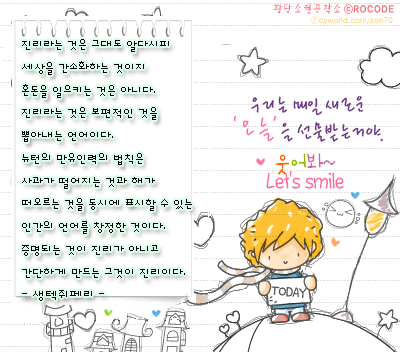 팡당소원공작소 ⓒROCODE
ⓒcyworld.com/zon70
진리라는 것은 그대도 알다시피
세상을 간소화하는 것이지
혼돈을 일으키는 것은 아니다.
진리라는 것은 보편적인 것을
뽑아내는 언어이다.
뉴턴의 만유인력의 법칙은
사과가 떨어지는 것과 해가
떠오르는 것을 동시에 표시할 수 있는
인간의 언어를 창정한 것이다.
증명되는 것이 진리가 아니고
간단하게 만드는 그것이 진리이다.
- 생텍쥐페리 -
우리는 매일 새로운
'오늘'을 선물받는거야.
웃어봐~
Let's smile
TODAY